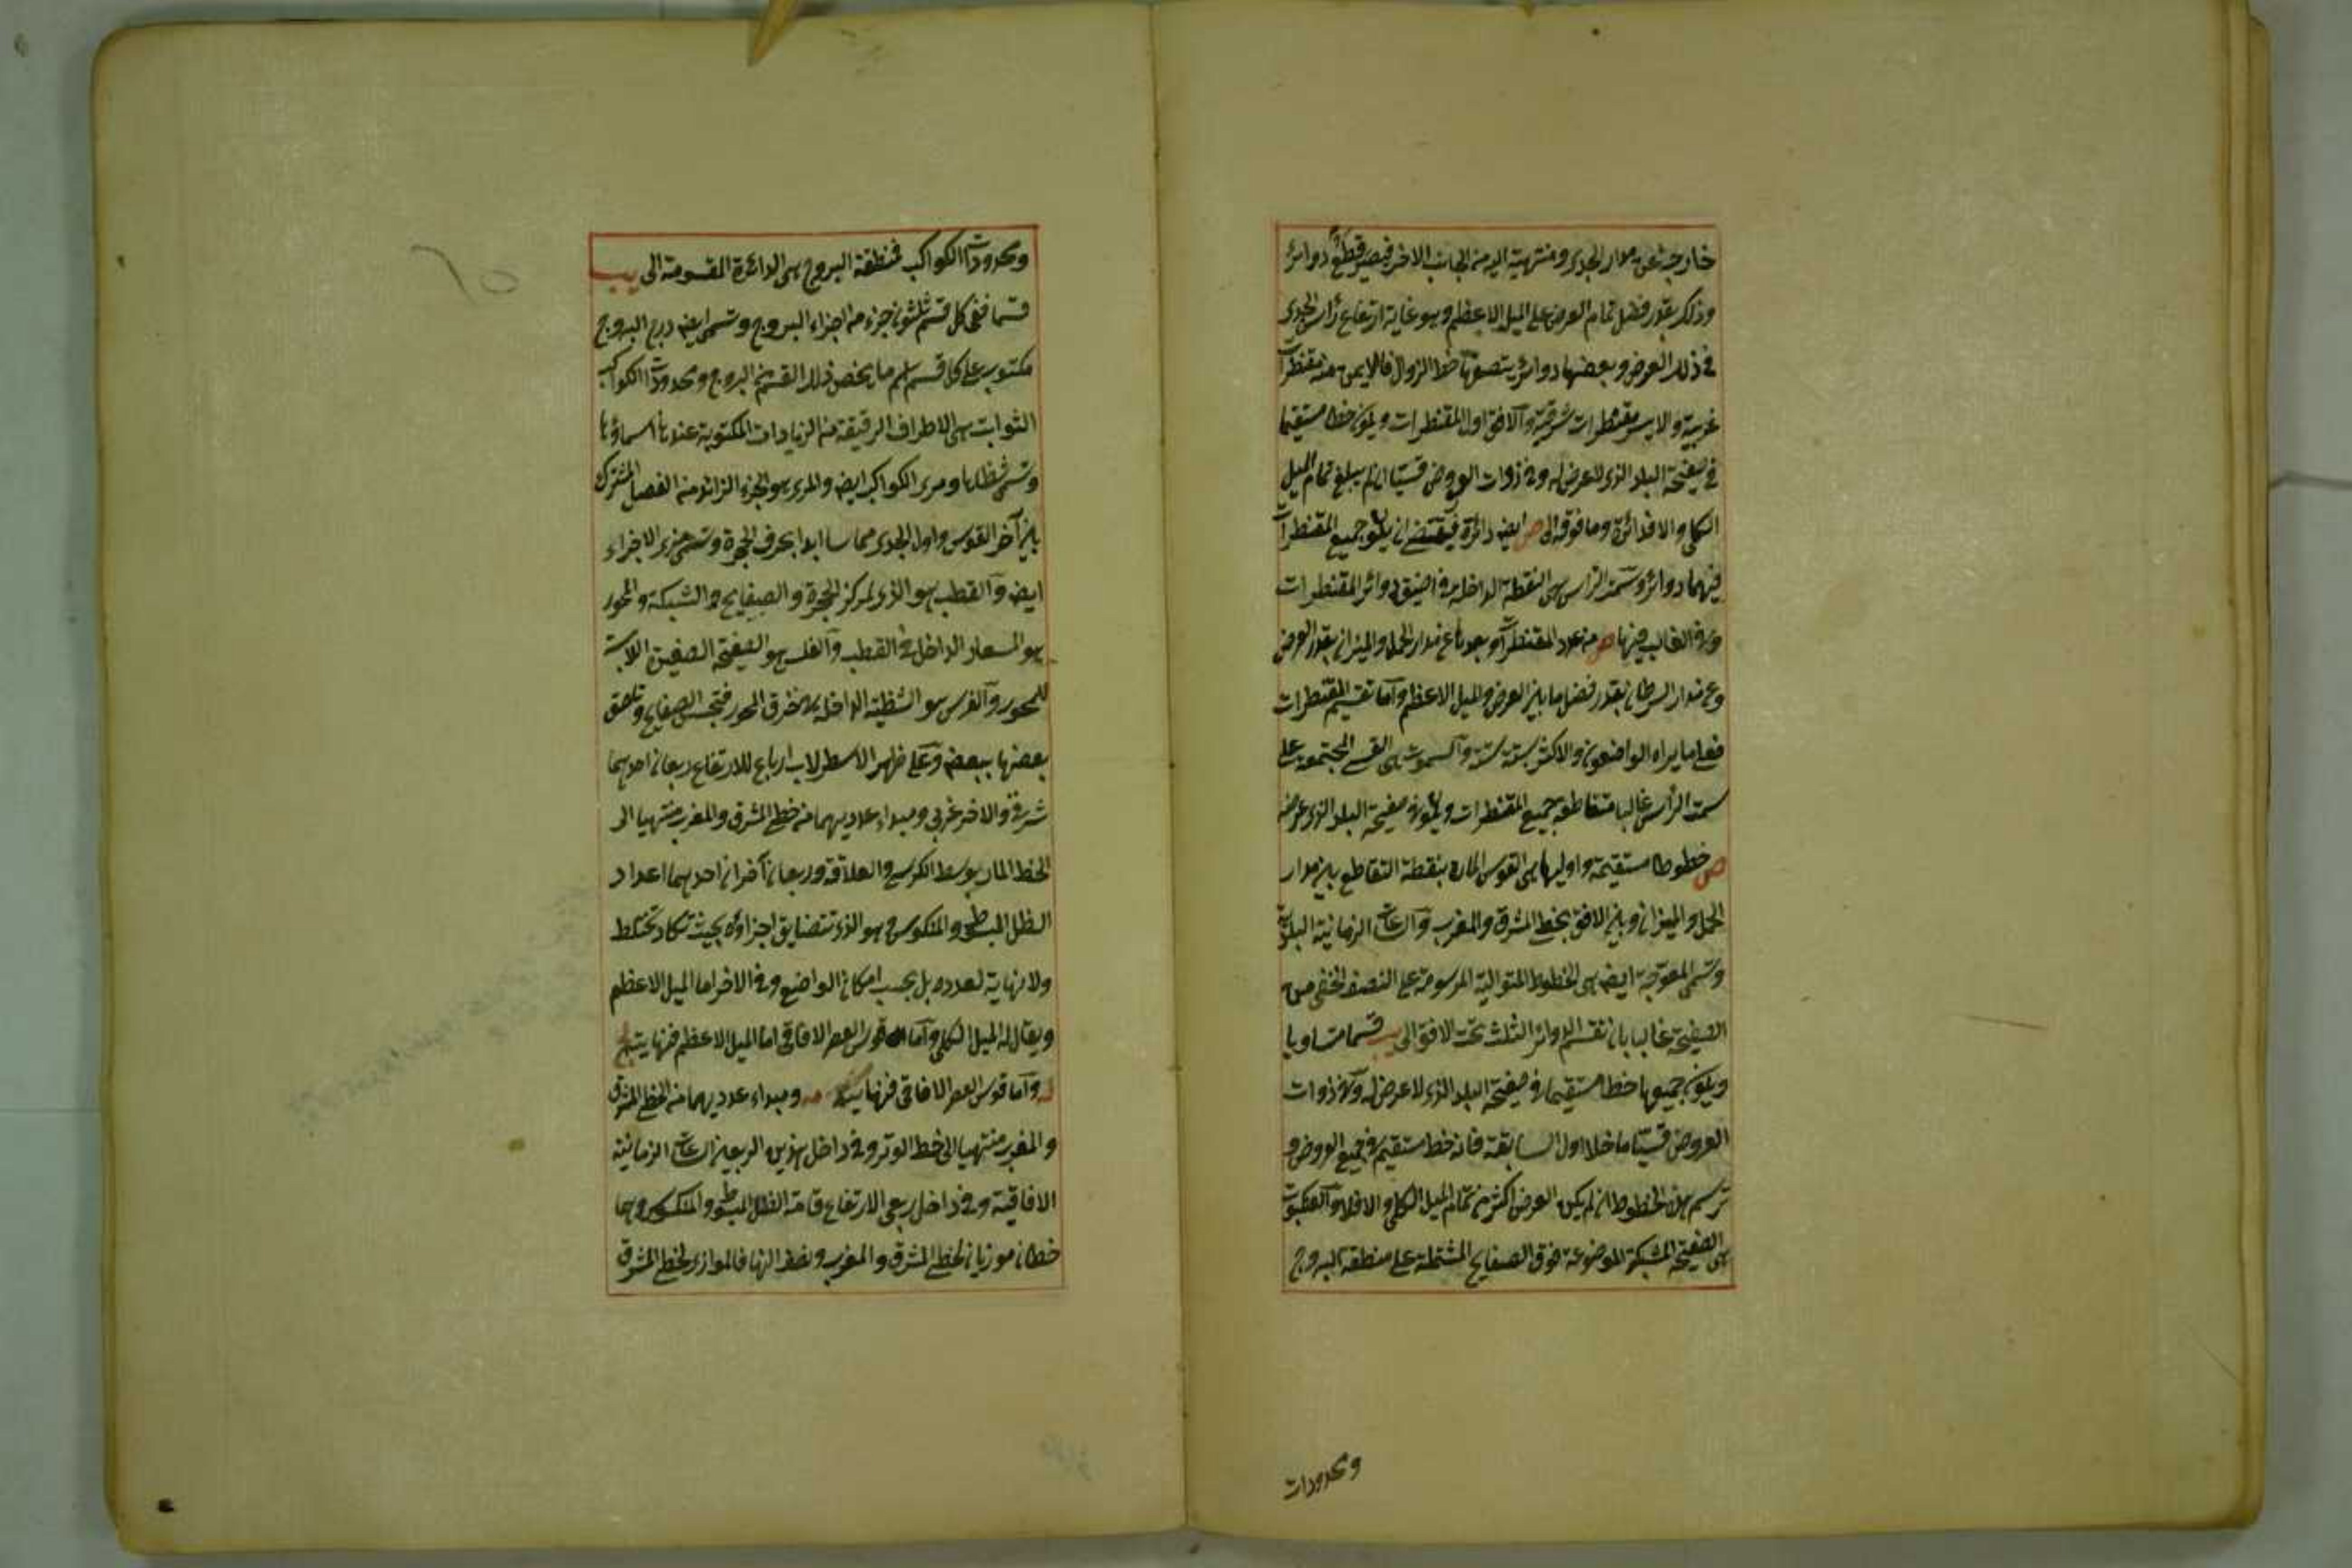 خارجة عن مدار الجدى ومنتهية اليه من الجانب الاخر فيصير قطع دوائر
وذلك بقدر فضل تمام العرض على الميل الاعظم وهو غاية ارتفاع رأس الجدى
فى ذلك العرض وبعضها دوائر ينصفها خط الزوال فالايمن منه مقنطرات
غربية والايسر مقنطرات شرقية والافق اول المقنطرات ويكون خطا مستقيما
فى صفيحة البلد الذى لا عرض له وفى ذوات العروض قسيا ان لم يبلغ تمام الميل
الكلى والا فدائرة وما فوقه الى ص ايض دائرة فيقتضى ان يكون جميع المقنطرات
فيهما دوائر وسمت الرأس هى النقطة الداخلة فى اضيق دوائر المقنطرات
وفى الغالب فيها ص من عدد المقنطرات وبعدها عن مدار الحمل والميزان بقدر العرض
وعن مدار السرطان بقدر فضل ما بين العرض والميل الاعظم واما تقسيم المقنطرات
فعلى ما يراه الواضعون والاكثر ستة ستة والسموت هى القسى المجتمعة على
سمت الرأس غالبا متقاطعة بجميع المقنطرات ويكون فى صفيحة البلد الذى عرضه
ص خطوطا مستقيمة واوليها هى القوس المارة بنقطة التقاطع بين مدار
الحمل والميزان وبين الافق بخط المشرق والمغرب والساعات الزمانية البلدية
وتسمى المعوجة ايض هى الخطوط المتوالية المرسومة على النصف الخفى من
الصفيحة غالبا بان تقسم الدوائر الثلث تحت الافق الى يب قسما متساويا
ويكون جميعها خطا مستقيما فى صفيحة البلد الذى لا عرض له وفى ذوات
العروض قسيا ما خلا اول السابقة فانه خط مستقيم فى جميع العروض و
ترسم هذه الخطوط ان لم يكن العرض اكثر من تمام الميل الكلى والا فلا والعنكبوت
هى الصفيحة المشبكة الموضوعة فوق الصفايح المشتملة على منطقة البروج
ومحدودات
ومحدودات الكواكب فمنطقة البروج هى الدائرة المقسومة الى يب
قسما ففى كل قسم ثلثون جزء من اجزاء البروج وتسمى ايض درج البروج
مكتوب على كل قسم اسم ما يخص ذلك القسم من البروج ومحدودات الكواكب
الثوابت هى الاطراف الرقيقة من الزيادات المكتوبة عندها اسماؤها
وتسمى شظايا ومرى الكواكب ايض والمرى هو الجزء الزائد من الفصل المشترك
بين آخر القوس واول الجدى مماسا ابدا بحرف الحجرة وتسمى مرى الاجزاء
ايض والقطب هو الذى لمركز الحجرة والصفايح والشبكة والمحور
هو المسمار الداخل فى القطب والفلس هو الصفيحة الصغيرة اللابسة
للمحور والفرس هو الشظية الداخلة فى خرق المحور فتحبس الصفايح وتلصق
بعضها ببعض وعلى ظهر الاسطرلاب ارباع للارتفاع ربعان احدهما
شرقى والاخر غربى ومبداء عدديهما من خط المشرق والمغرب منتهيا الى
الخط المار بوسط الكرسى والعلاقة وربعان آخران احدهما اعداد
الظل المبسوط والمنكوس وهو الذى تتضايق اجزاؤه بحيث تكاد تختلط
ولا نهاية لعدده بل بحسب امكان الواضع وفى الاخر اما الميل الاعظم
ويقال له الميل الكلى واما قوس العصر الافاقى اما الميل الاعظم فنهايته كج
له واما قوس العصر الافاقى فنهايته مه ومبداء عدديهما من الخط المشرق
والمغرب منتهيا الى خط الوتر وفى داخل هذين الربعين الساعات الزمانية
الافاقية وفى داخل ربعى الارتفاع قامة الظل المبسوط والمنكوس وهما
خطان موزيان لخطى المشرق والمغرب ونصف النهار فالموازى لخط المشرق